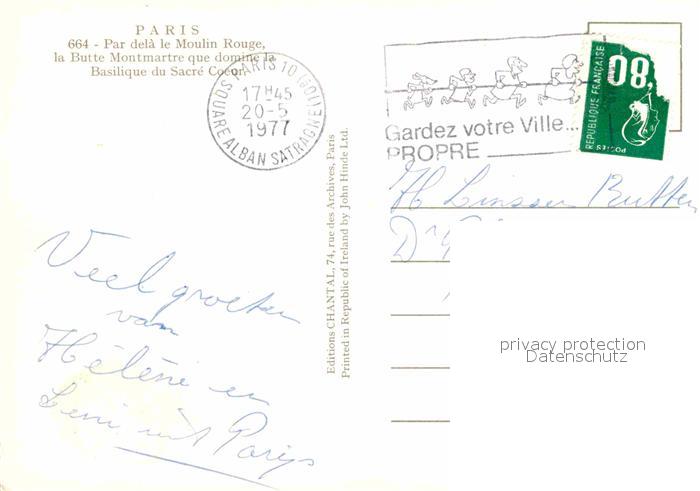 PARIS
664 - Par delà le Moulin Rouge,
la Butte Montmartre que domine la
Basilique du Sacré Coeur.
PARIS 10 (10e)
17H45
20-5
1977
SQUARE ALBAN SATRAGNE
Gardez votre Ville...
PROPRE
REPUBLIQUE FRANÇAISE
0.80
POSTES
Editions CHANTAL, 74, rue des Archives, Paris
Printed in Republic of Ireland by John Hinde Ltd.
Veel groeten
van
Hélène en
Leni uit Parijs
H Linssen Butter
privacy protection
Datenschutz